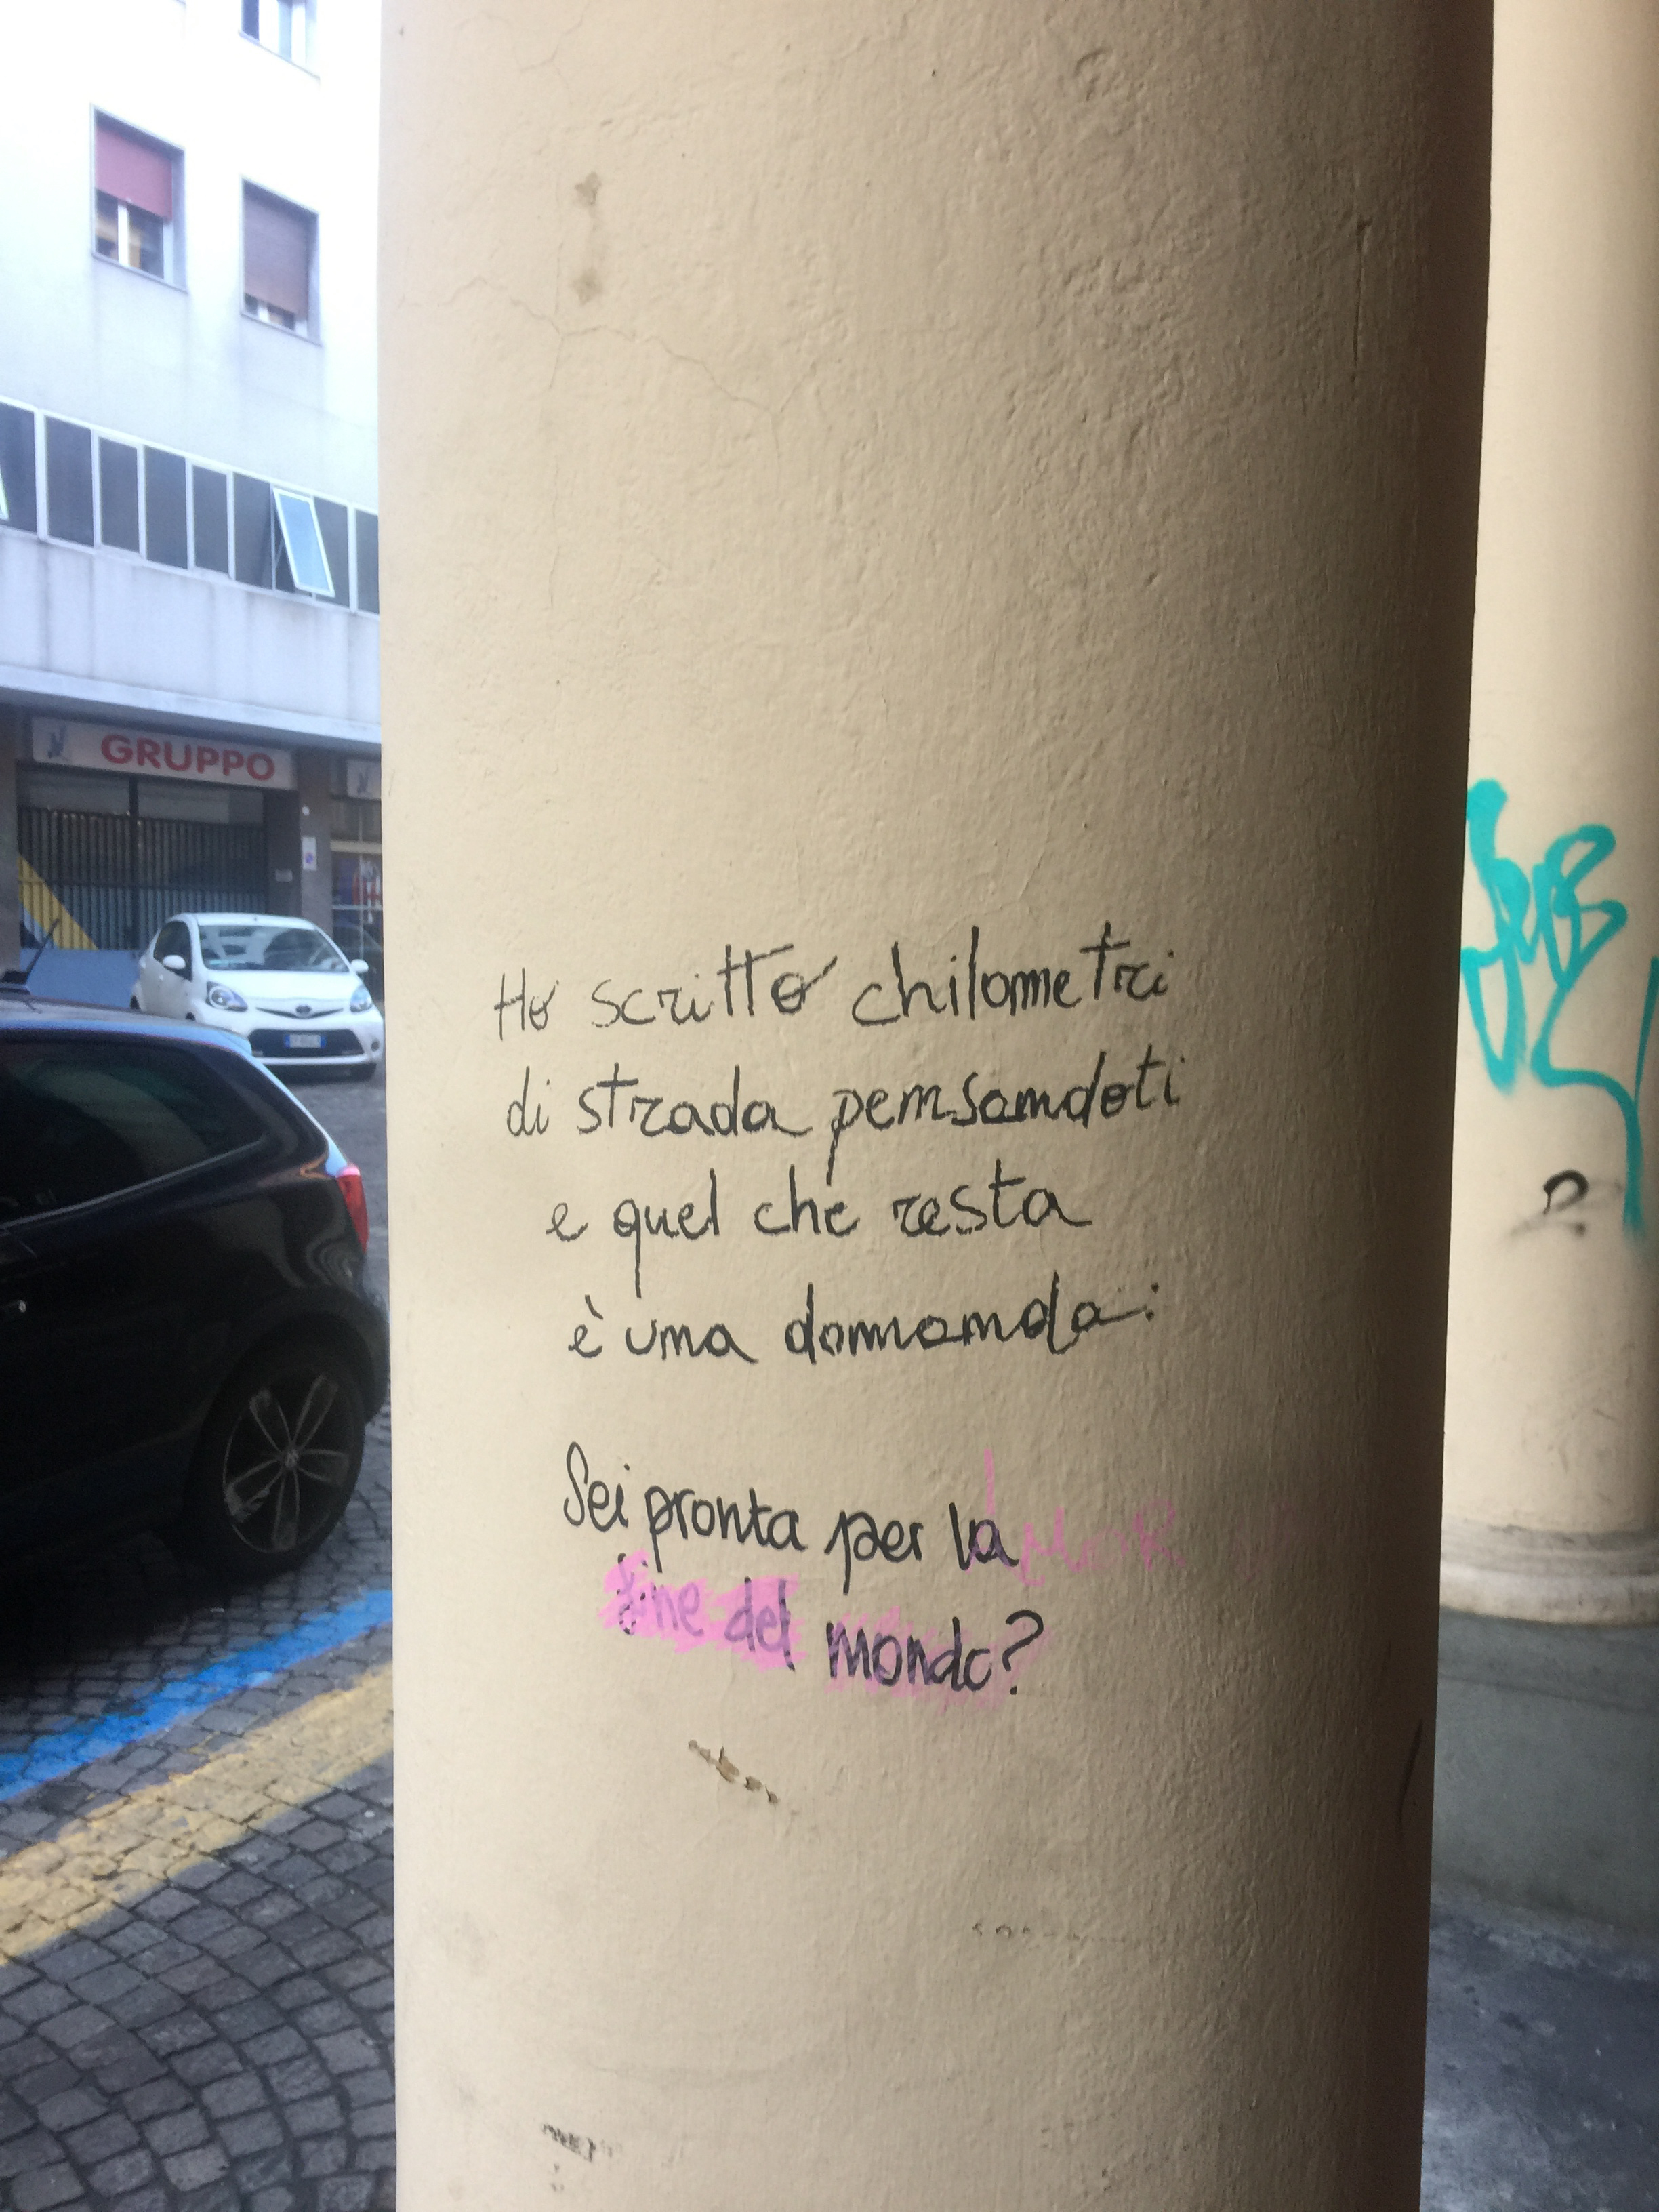 GRUPPO
Ho scritto chilometri
di strada pensandoti
e quel che resta
è una domanda:
Sei pronta per la
fine del mondo?